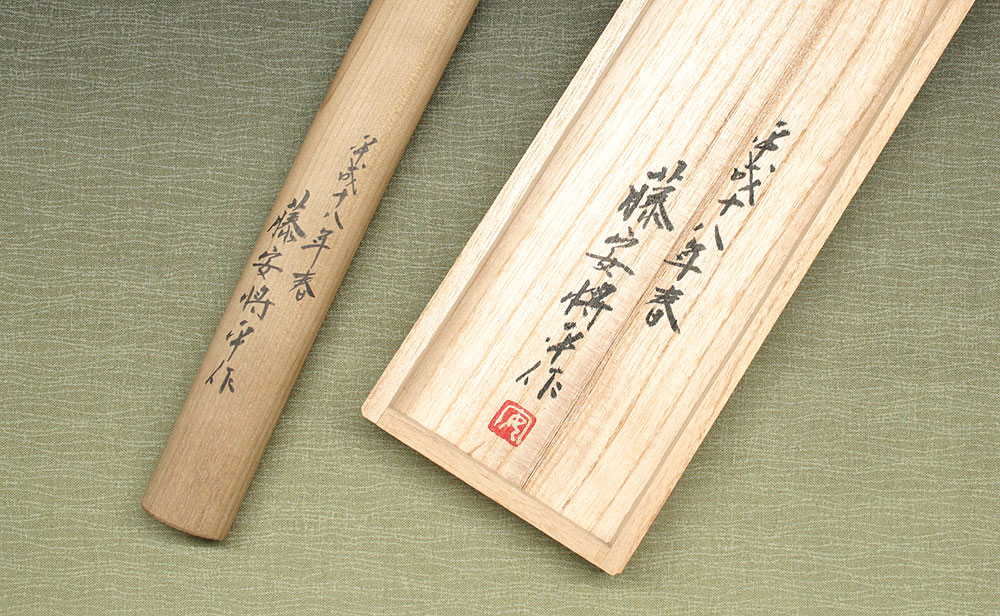 平成十八年春
藤安将平作
平成十八年春
藤安将平作